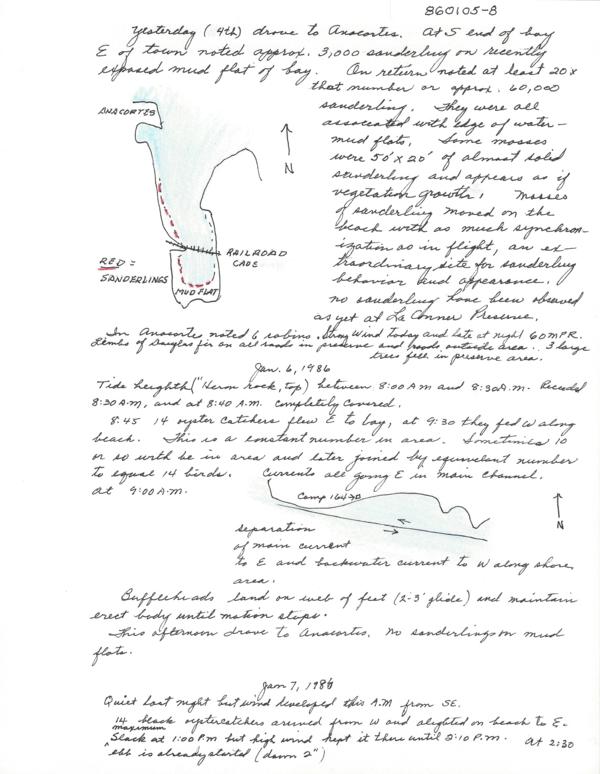 860105-B
Yesterday (4th) drove to Anacortes. At S end of bay
E of town noted approx. 3,000 sanderling on recently
exposed mud flat of bay. On return noted at least 20x
that number or approx. 60,000
sanderling. They were all
associated with edge of water-
mud flats. Some masses
were 50' x 20' of almost solid
sanderling and appears as if
vegetation growth! Masses
of sanderling moved on the
beach with as much synchron-
ization as in flight, an ex-
traordinary site for sanderling
behavior and appearance.
no sanderling have been observed
as yet at La Conner Preserve.
ANACORTES
N
RED =
SANDERLINGS
RAILROAD
MUD FLAT
In Anacorte noted 6 robins. Strong wind today and late at night 60 MPR.
Limbs of Douglas fir on all roads in preserve and roads outside area. 3 large
trees fell in preserve area.
Jan. 6, 1986
Tide heighth ("Heron rock, top) between 8:00 AM and 8:30 A.M. Receded
8:30 A.M, and at 8:40 A.M. completely covered.
8:45 14 oyster catchers flew E to bay, at 9:30 they fed W along
beach. This is a constant number in area. Sometimes 10
or so will be in area and later joined by equivalent number
to equal 14 birds. Currents all going E in main channel.
at 9:00 A.M.
Camp
N
separation
of main current
to E and backwater current to W along shore
area.
Buffleheads land on web of feet (2-3' glide) and maintain
erect body until motion stops.
This afternoon drove to Anacortes. No sanderlings on mud
flats.
Jan 7, 1986
Quiet last night but wind developed this A.M from SE.
14 black oystercatchers arrived from W and alighted on beach to E.
maximum
Slack at 1:00 P.M but high wind kept it there until 2:10 P.M. At 2:30
"ebb is already started (down 2")